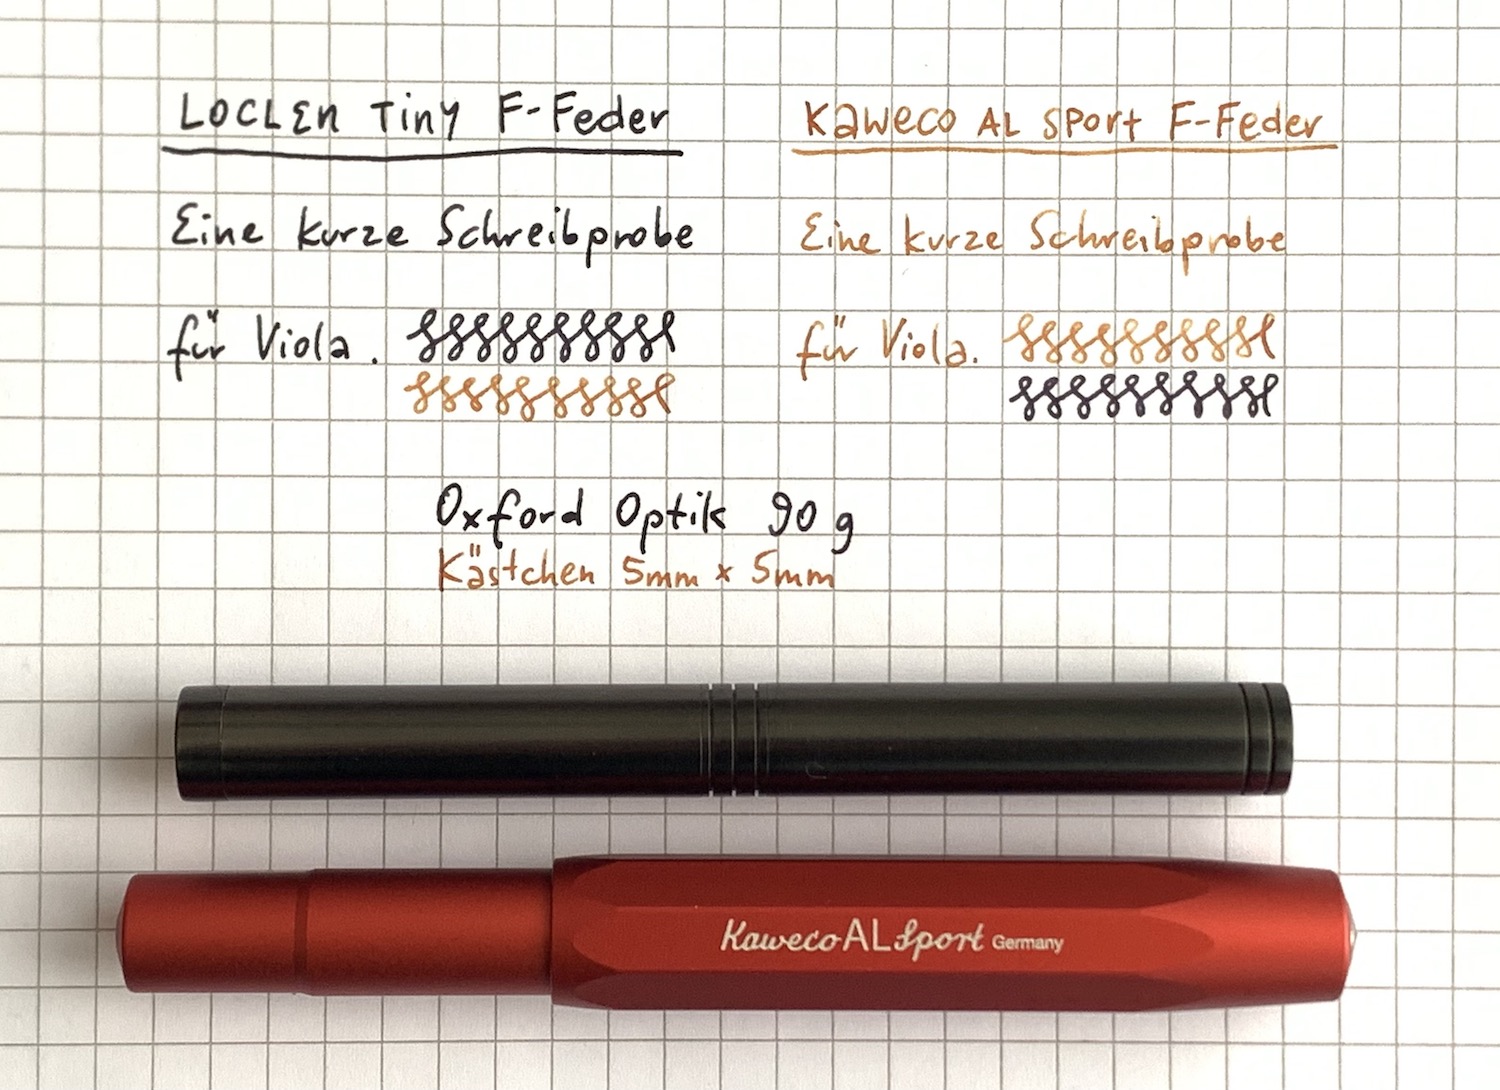 LOCLEN Tiny F-Feder
Eine kurze Schreibprobe
für Viola.
Kaweco AL Sport F-Feder
Eine kurze Schreibprobe
für Viola.
Oxford Optik 90 g
Kästchen 5mm x 5mm
Kaweco AL Sport Germany